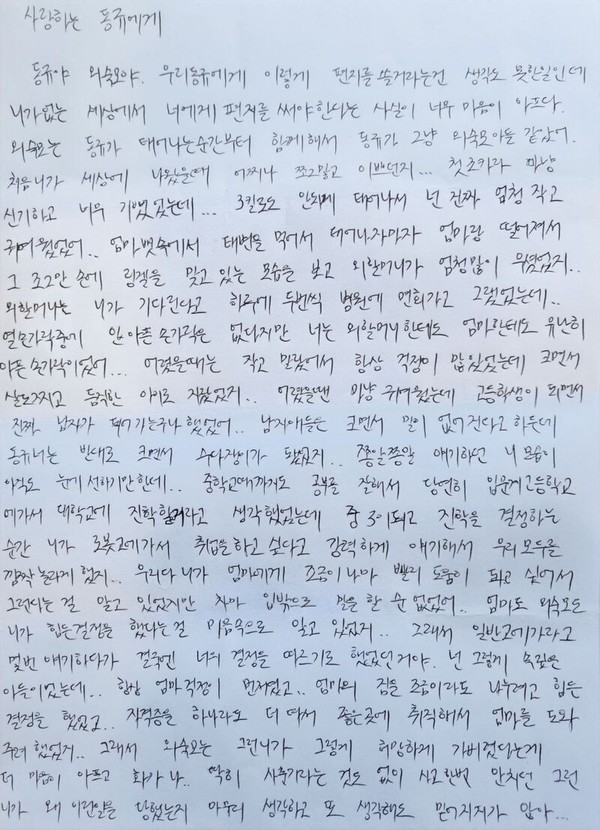 사랑하는 동규에게
동규야 외숙모야. 우리동규에게 이렇게 편지를 쓸거라는건 생각도 못한일인데
니가없는 세상에서 너에게 편지를 써야한다는 사실이 너무 마음이 아프다.
외숙모는 동규가 태어나는순간부터 함께해서 동규가 그냥 외숙모아들 같았어.
처음니가 세상에 나왔을때 어찌나 쪼그맣고 이쁘던지... 첫조카라 마냥
신기하고 너무 기뻤었는데... 3킬로도 안되게 태어나서 넌 진짜 엄청 작고
귀여웠었어.. 엄마뱃속에서 태변을 먹어서 태어나자마자 엄마랑 떨어져서
그 조그만 손에 링겔을 맞고있는 모습을 보고 외할머니가 엄청많이 우셨었지..
외할머니는 니가 기다린다고 하루에 두번씩 병원에 면회가고 그랬었는데..
열손가락중에 안아픈 손가락은 없다지만 너는 외할머니한테도 엄마한테도 유난히
아픈 손가락이었어... 어렸을때는 작고 말랐어서 항상 걱정이 많았었는데 크면서
살도찌고 듬직한 아이로 자랐었지.. 어렸을땐 마냥 귀여웠는데 고등학생이 되면서
진짜 남자가 되어가는구나 했었어.. 남자애들은 크면서 말이 없어진다고 하는데
동규너는 반대로 크면서 수다쟁이가 됐었지.. 쫑알쫑알 얘기하던 니 모습이
아직도 눈에 선하기만한데.. 중학교때까지도 공부를 잘해서 당연히 인문계고등학교
에가서 대학교에 진학할거라고 생각했었는데 중3이되고 진학을 결정하는
순간 니가 로봇고에가서 취업을하고 싶다고 강력하게 얘기해서 우리모두를
깜짝 놀라게 했지.. 우리다 니가 엄마에게 조금이나마 빨리 도움이 되고 싶어서
그런다는 걸 알고 있었지만 차마 입밖으로 말을 할 순 없었어.. 엄마도 외숙모도
니가 힘든결정을 했다는걸 마음속으로 알고 있었지.. 그래서 일반고에가라고
몇번 얘기하다가 결국엔 너의 결정을 따르기로 했었던거야. 넌 그렇게 속깊은
아들이었는데.. 항상 엄마걱정이 먼저였고.. 엄마의 짐을 조금이라도 나누려고 힘든
결정을 했었고.. 자격증을 하나라도 더 따서 좋은곳에 취직해서 엄마를 도와
주려 했었지.. 그래서 외숙모는 그런니가 그렇게 허망하게 가버렸다는게
더 마음이 아프고 화가 나.. 딱히 사춘기라는 것도 없이 사고한번 안치던 그런
니가 왜 이런일을 당했는지 아무리 생각하고 또 생각해도 믿어지지가 않아...